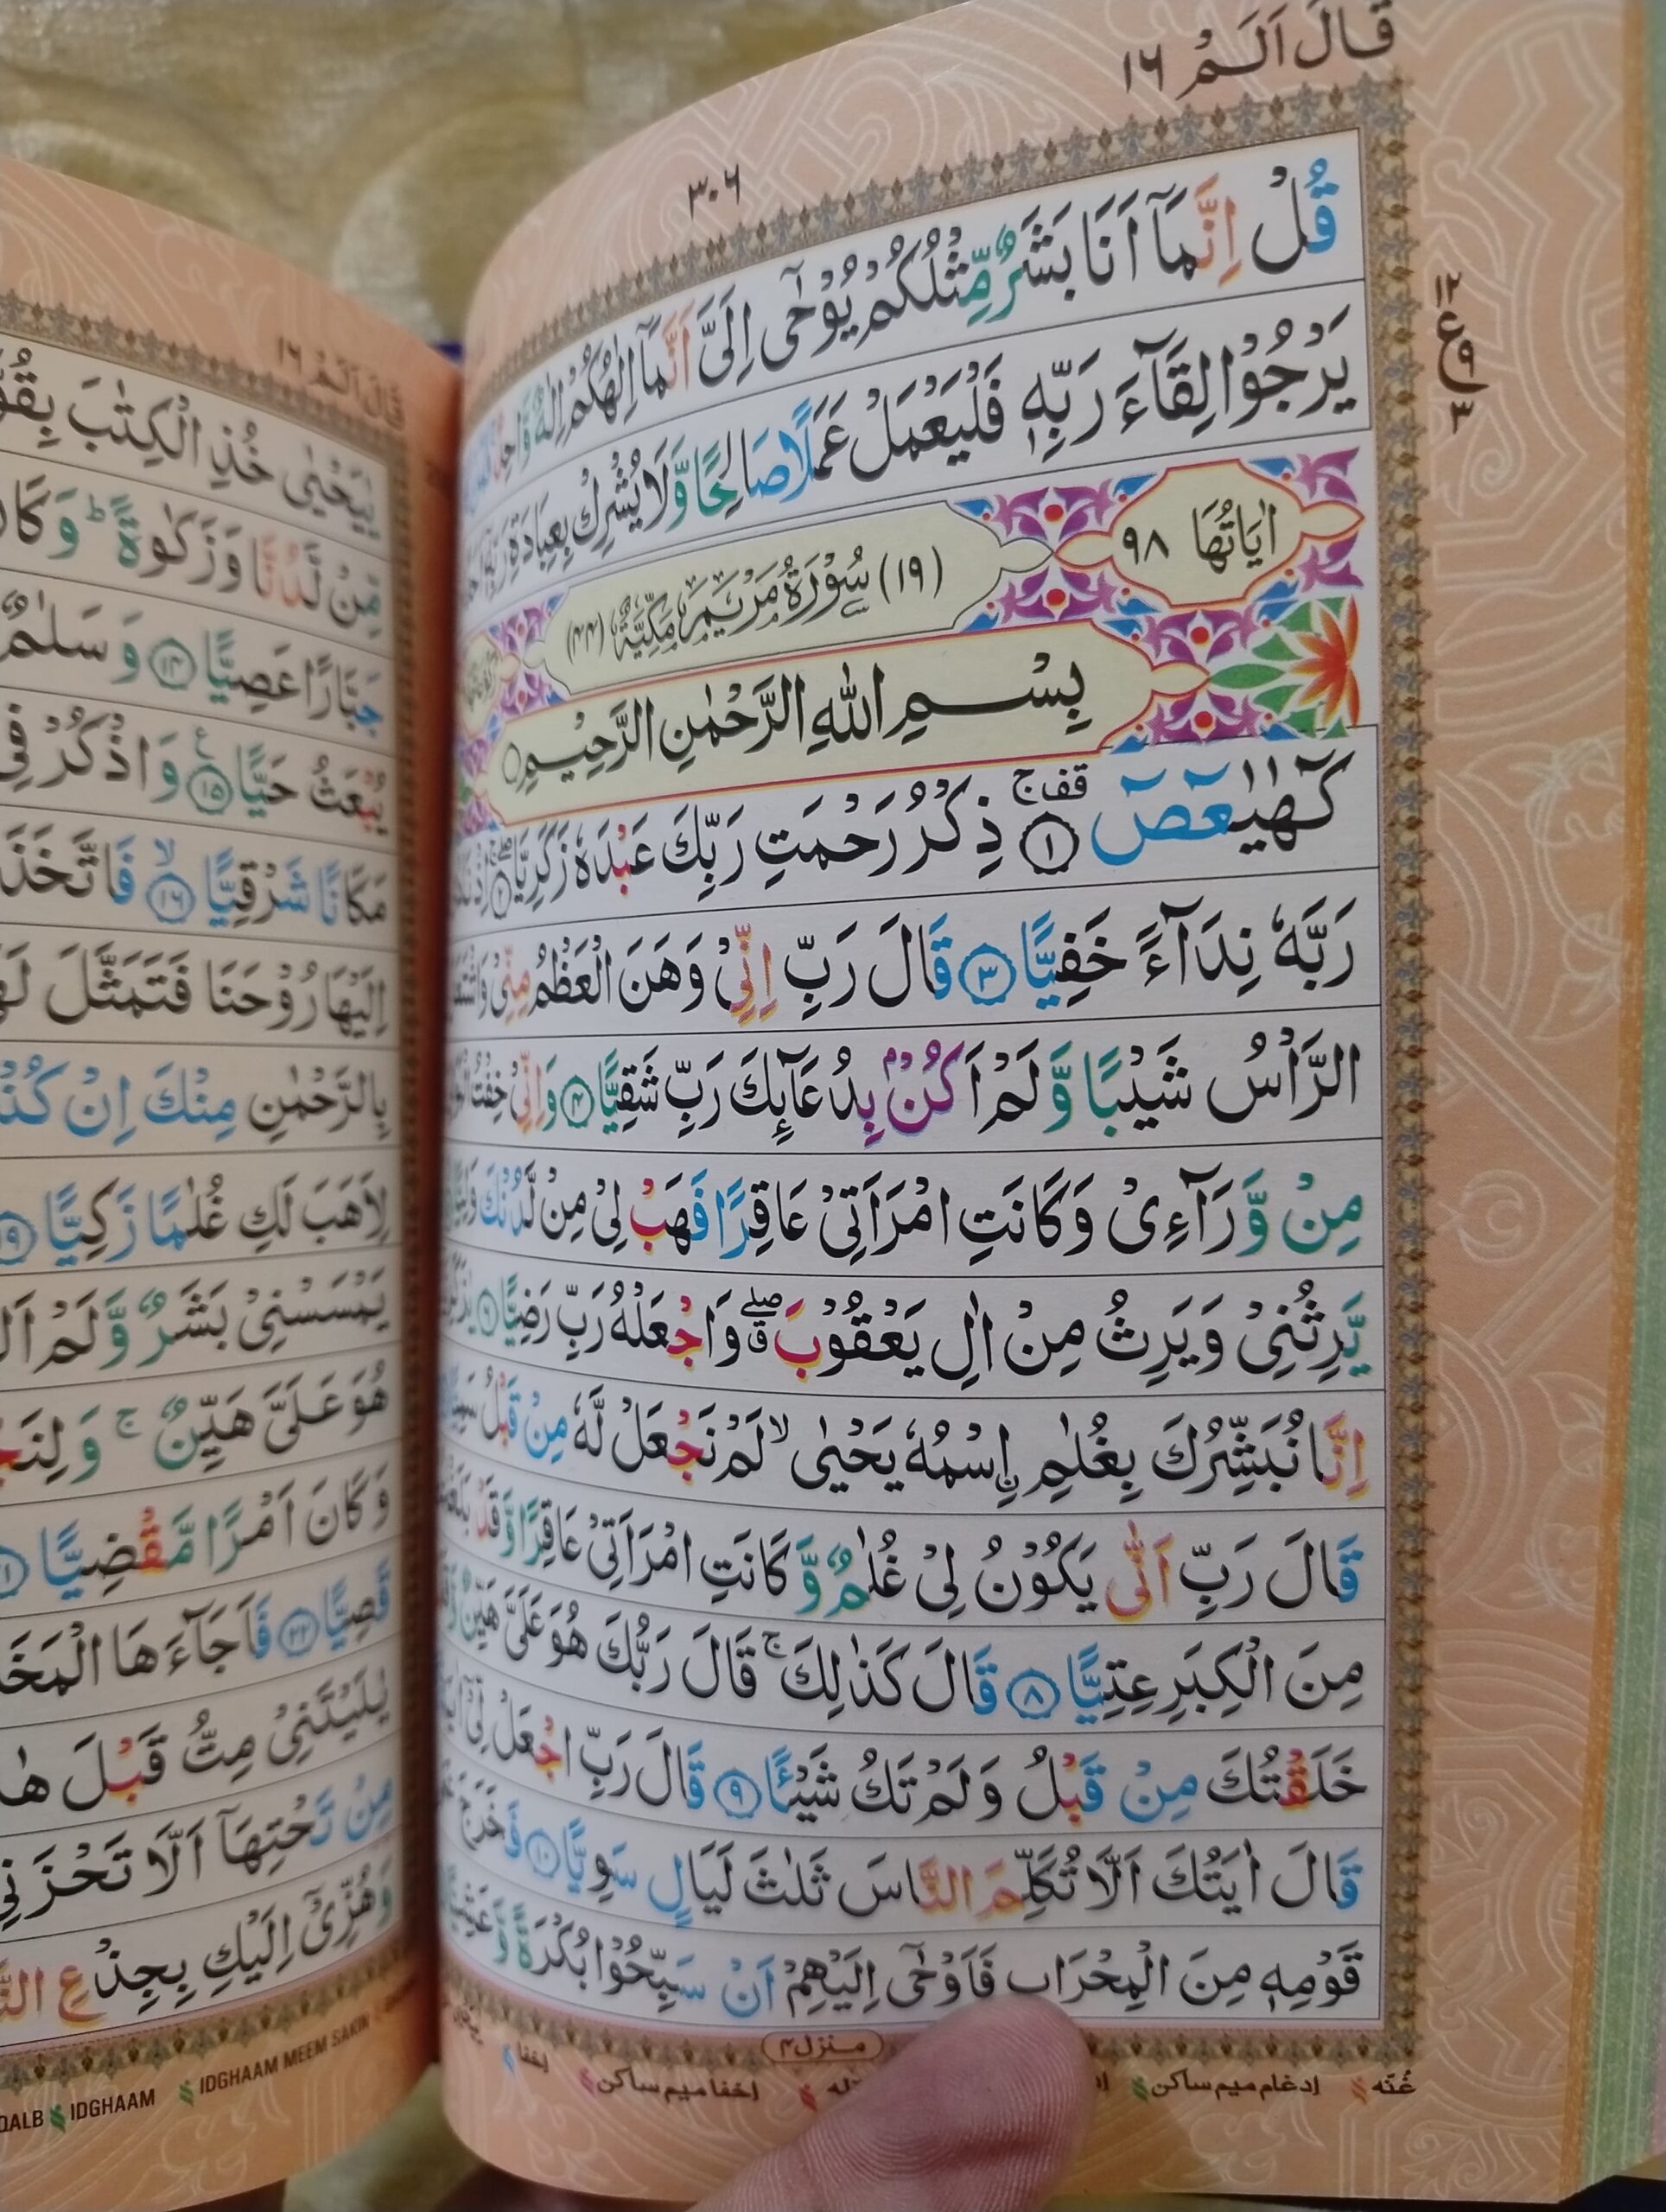 قَالَ اَلَمْ ١٦
٣٠٦
قُلْ اِنَّمَآ اَنَا بَشَرٌ مِّثْلُكُمْ يُوْحٰٓى اِلَيَّ اَنَّمَآ اِلٰهُكُمْ اِلٰهٌ وَّاحِدٌ
يَرْجُوْا لِقَآءَ رَبِّهٖ فَلْيَعْمَلْ عَمَلًا صَالِحًا وَّلَا يُشْرِكْ بِعِبَادَةِ رَبِّهٖٓ
اٰيَاتُهَا ٩٨
(١٩) سُوْرَةُ مَرْيَمَ مَكِّيَّةٌ (٤٤)
بِسْمِ اللّٰهِ الرَّحْمٰنِ الرَّحِيْمِ
كٓهٰيٰعٓصٓ ١ ذِكْرُ رَحْمَتِ رَبِّكَ عَبْدَهٗ زَكَرِيَّا ٢
رَبَّهٗ نِدَآءً خَفِيًّا ٣ قَالَ رَبِّ اِنِّيْ وَهَنَ الْعَظْمُ مِنِّيْ
الرَّاْسُ شَيْبًا وَّلَمْ اَكُنْۢ بِدُعَآىِٕكَ رَبِّ شَقِيًّا ٤ وَاِنِّيْ خِفْتُ
مِنْ وَّرَآءِيْ وَكَانَتِ امْرَاَتِيْ عَاقِرًا فَهَبْ لِيْ مِنْ لَّدُنْكَ
يَّرِثُنِيْ وَيَرِثُ مِنْ اٰلِ يَعْقُوْبَ وَاجْعَلْهُ رَبِّ رَضِيًّا ٦
اِنَّا نُبَشِّرُكَ بِغُلٰمِ ِۨاسْمُهٗ يَحْيٰى لا لَمْ نَجْعَلْ لَّهٗ مِنْ قَبْلُ
قَالَ رَبِّ اَنّٰى يَكُوْنُ لِيْ غُلٰمٌ وَّكَانَتِ امْرَاَتِيْ عَاقِرًا وَّقَدْ
مِنَ الْكِبَرِ عِتِيًّا ٨ قَالَ كَذٰلِكَ ج قَالَ رَبُّكَ هُوَ عَلَيَّ هَيِّنٌ
خَلَقْتُكَ مِنْ قَبْلُ وَلَمْ تَكُ شَيْـًٔا ٩ قَالَ رَبِّ اجْعَلْ لِّيْٓ
قَالَ اٰيَتُكَ اَلَّا تُكَلِّمَ النَّاسَ ثَلٰثَ لَيَالٍ سَوِيًّا ١٠ فَخَرَجَ
قَوْمِهٖ مِنَ الْمِحْرَابِ فَاَوْحٰٓى اِلَيْهِمْ اَنْ سَبِّحُوْا بُكْرَةً وَّعَشِيًّا
منزل ٤
غُنّه ادغام ميم ساكن اخفا ميم ساكن اخفا
قَالَ اَلَمْ ١٦
يٰيَحْيٰى خُذِ الْكِتٰبَ
مِّنْ لَّدُنَّا وَزَكٰوةً ط وَكَانَ
جَبَّارًا عَصِيًّا ١٤ وَسَلٰمٌ
يُبْعَثُ حَيًّا ١٥ وَاذْكُرْ فِي
مَكَانًا شَرْقِيًّا ١٦ فَاتَّخَذَ
اِلَيْهَا رُوْحَنَا فَتَمَثَّلَ
بِالرَّحْمٰنِ مِنْكَ اِنْ
لِاَهَبَ لَكِ غُلٰمًا زَكِيًّا ١٩
يَمْسَسْنِيْ بَشَرٌ وَّلَمْ
هُوَ عَلَيَّ هَيِّنٌ ج
وَكَانَ اَمْرًا مَّقْضِيًّا
قَصِيًّا ٢٢ فَاَجَآءَهَا
يٰلَيْتَنِيْ مِتُّ قَبْلَ
مِنْ تَحْتِهَآ اَلَّا تَحْزَنِيْ
وَهُزِّيْٓ اِلَيْكِ بِجِذْعِ
QALB IDGHAAM IDGHAAM MEEM SAKIN